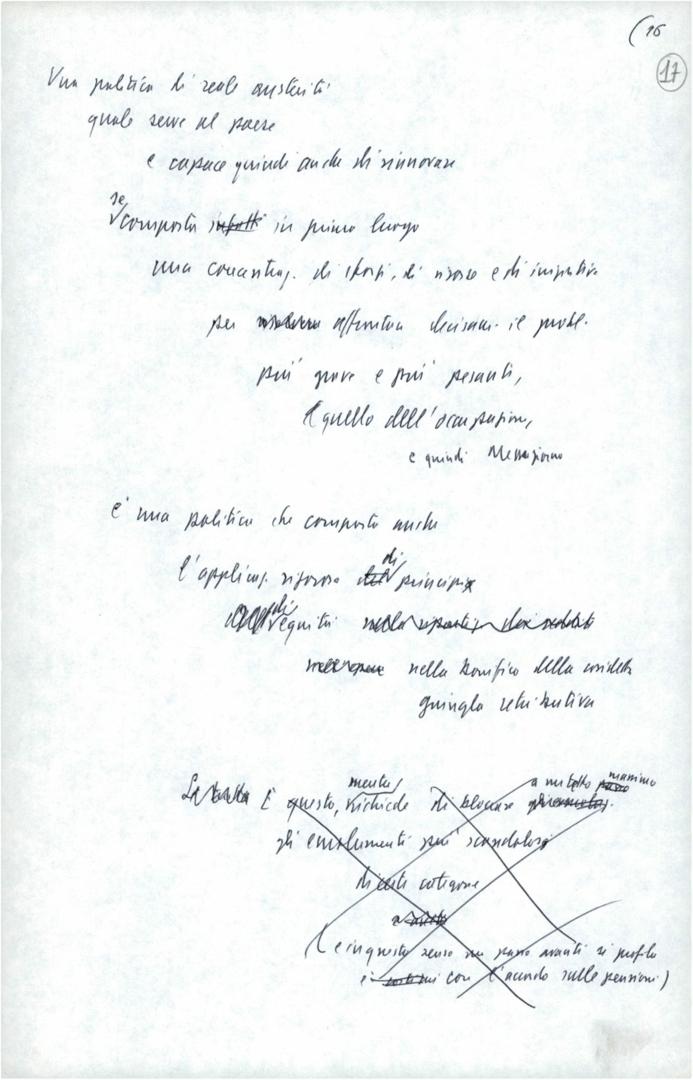 (16
17
Una politica di reale austerità
quale serve al paese
e capace quindi anche di rinnovare
se comporta infatti in primo luogo
una concentraz. di sforzi, di risorse e di iniziativa
per risolvere affrontare decisam. il probl.
più grave e più pesante,
quello dell'occupazione,
e quindi Mezzogiorno
è una politica che comporta anche
l'applicaz. rigorosa di principi
di equità nella
nella bonifica della cosidetta
giungla retributiva
È questo, mentre richiede di bloccare a un tetto massimo
gli emolumenti più scandalosi
di certe categorie
(e in questo senso un passo avanti si profila
con l'accordo sulle pensioni)